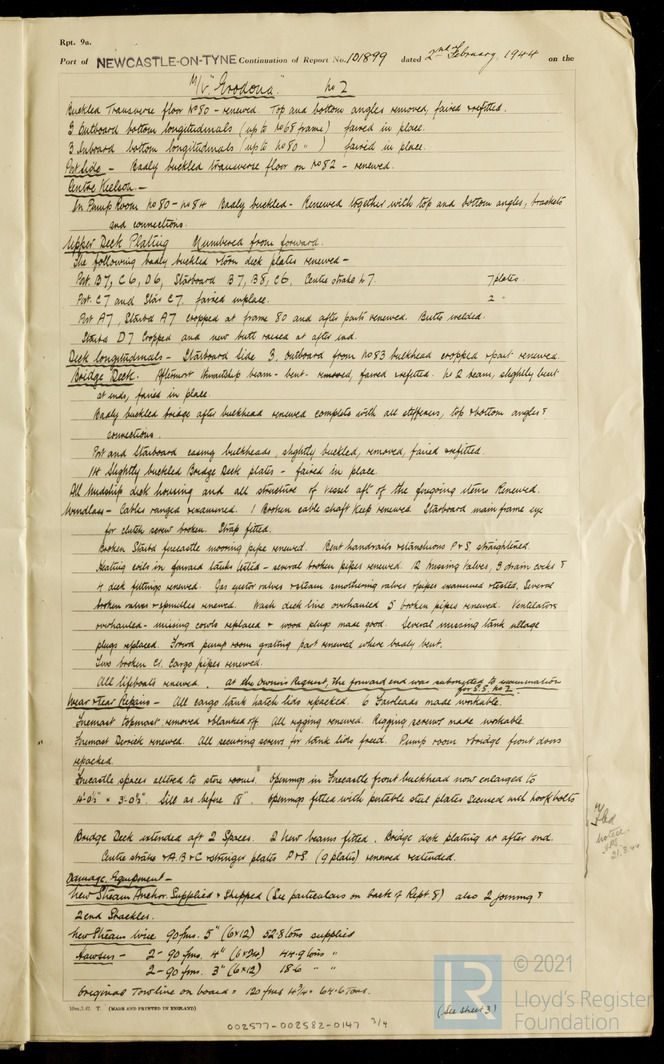 Rpt. 9a.
Port of NEWCASTLE-ON-TYNE Continuation of Report No. 101899 dated 2nd February, 1944 on the
M/V "Erodona" No 2
Buckled Transverse floor No 80 - renewed. Top and bottom angles removed, faired & refitted.
3 Outboard bottom longitudinals (up to No 68 frame) faired in place.
3 Inboard bottom longitudinals (up to No 80 " ) faired in place.
Port Side - Badly buckled transverse floor on No 82 - renewed.
Centre Keelson. -
In Pump Room No 80 - No 84 Badly buckled - Renewed together with top and bottom angles, brackets
and connections.
Upper Deck Plating Numbered from forward.
The following badly buckled & torn deck plates renewed -
Port. B7, C6, D6, Starboard B7, B8, C6, Centre strake No 7. 7 plates.
Port. C7 and Starbd C7. faired in place. 2 "
Port A7, Starbd A7 cropped at frame 80 and after parts renewed. Butts welded.
Starbd D7 Cropped and new butt raised at after end.
Deck longitudinals - Starboard side 3. Outboard from No 83 bulkhead cropped & part renewed.
Bridge Deck. Aftermost thwartship beam - bent - removed, faired & refitted. No 2 beam, slightly bent
at ends, faired in place.
Badly buckled bridge after bulkhead renewed complete with all stiffeners, top & bottom angles &
connections.
Port and Starboard casing bulkheads, slightly buckled, removed, faired & refitted.
14 Slightly buckled Bridge Deck plates - faired in place.
All Midship deck housing and all structure of vessel aft of the forgoing items Renewed.
Windlass - Cables ranged & examined. 1 Broken cable shaft keep renewed. Starboard main frame eye
for clutch screw broken. Strap fitted.
Broken Starbd forecastle mooring pipe renewed. Bent handrails & stanchions P & S. straightened.
Heating coils in forward tanks tested - several broken pipes renewed. 12 missing valves, 3 drain cocks &
4 deck fittings renewed. Gas ejector valves & steam smothering valves & pipes examined & tested. Several
broken valves & spindles renewed. Wash deck line overhauled 5 broken pipes renewed. Ventilators
overhauled - missing cowls replaced & wood plugs made good. Several missing tank ullage
plugs replaced. Forwd pump room grating part renewed where badly bent.
Two broken C.I. Cargo pipes renewed.
All lifeboats renewed. At the Owners Request, the forward end was submitted to examination
for S.S. No 2.
Wear & Tear Repairs - All cargo tank hatch lids repacked. 6 Fairleads made workable.
Foremast topmast removed & blanked off. All rigging renewed. Rigging screws made workable.
Foremast Derrick renewed. All securing screws for tank lids freed. Pump room & bridge front doors
repacked.
Forecastle spaces altered to store rooms. Openings in Forecastle front bulkhead now enlarged to
4'-0½" x 3'-0½". Sill as before 18". Openings fitted with portable steel plates secured with hook bolts
Bridge Deck extended aft 2 Spaces. 2 New beams fitted. Bridge deck plating at after end.
Centre strake & A.B & C & stringer plates P & S. (9 plates) renewed & extended.
Damage Equipment -
New Stream Anchor Supplied & Shipped (See particulars on back of Rept. 8) also 2 joining &
2 end Shackles.
New Stream Wire 90 fms. 5" (6x12) 52.8 tons supplied
Hawsers - 2 - 90 fms. 4" (6x24) 44.9 tons "
2 - 90 fms. 3" (6x12) 18.6 " "
Original Towline on board = 120 fms 4¾" = 64.6 Tons.
(See sheet 3)
noted
21.3.44
10m,3.42. T. (MADE AND PRINTED IN ENGLAND)
002577-002582-0147 3/4
© 2021
Lloyd's Register
Foundation
LR